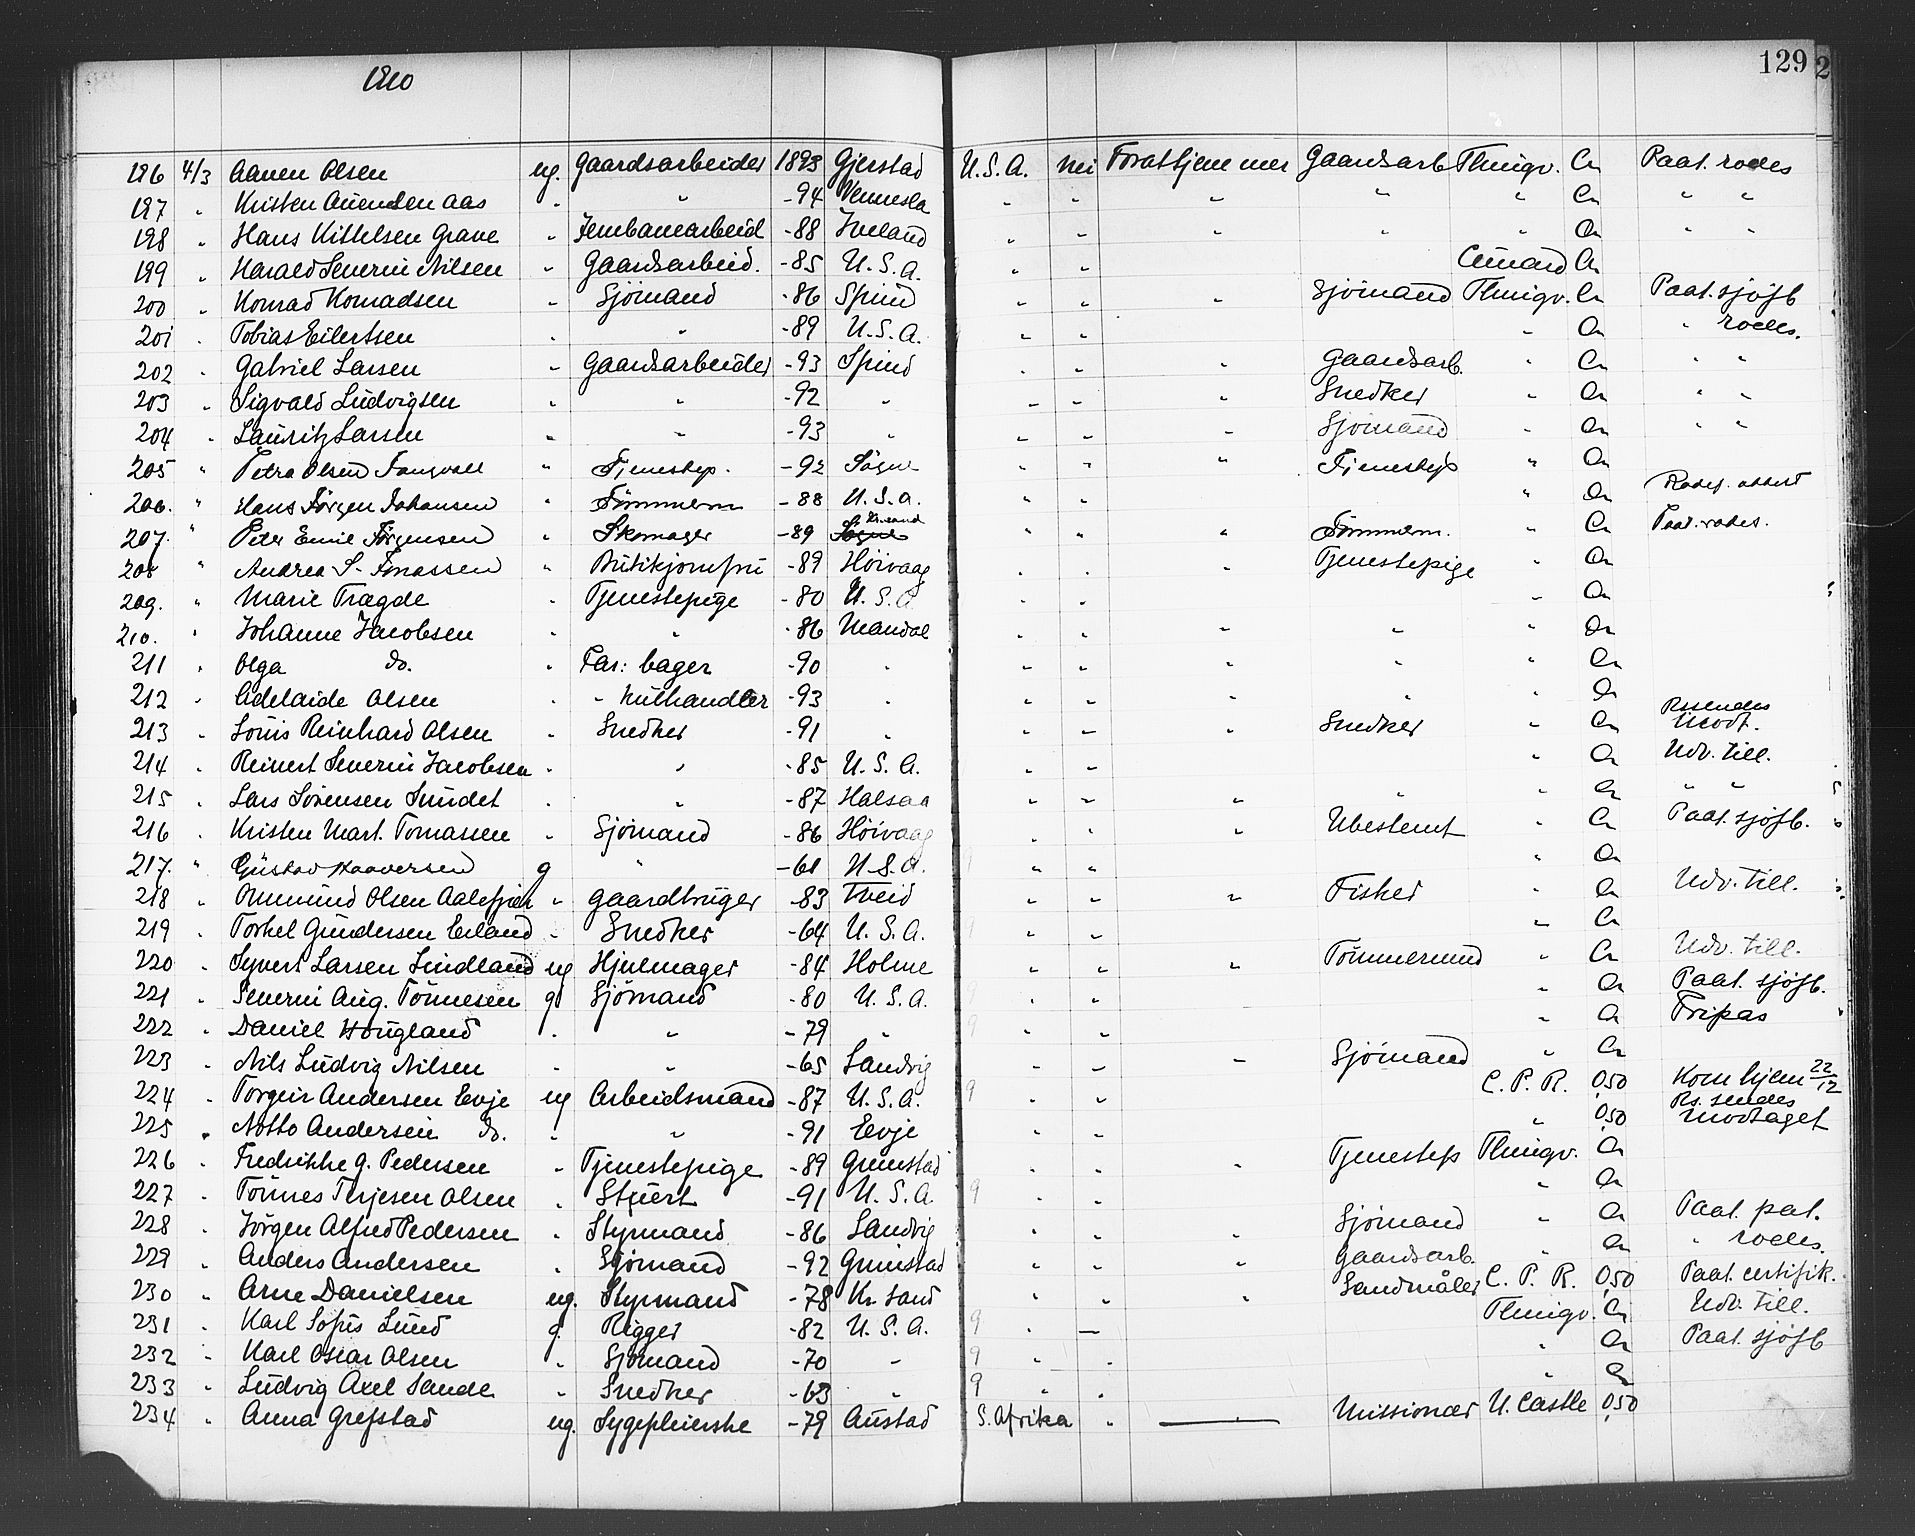 1910
129
196 4/3 Aanen Olsen ug. Gaardsarbeider 1893 Gjerstad U.S.A. nei Forat tjene mer Gaardsarb Thingv. Cr Paat. rodes
197 " Kristen Auensen Aas " " -94 Vennesla " " " " " Cr " "
198 " Hans Kittelsen Grave " Jernbanearbeid -88 Iveland " " " " " Cr " "
199 " Harald Severin Nilsen " Gaardsarbeid. -85 U.S.A. " " Cunard Cr
200 " Konrad Konradsen " Sjömand -86 Spind " " " Sjömand Thingv. Cr Paat. sjöfb
201 " Tobias Eilertsen " " -89 U.S.A. " " " Cr " rodes.
202 " Gabriel Larsen " Gaardsarbeider -93 Spind " " " Gaardsarb. " Cr " "
203 " Sigvald Ludvigsen " " -92 " " " " Snedker " Cr " "
204 " Lauritz Larsen " " -93 " " " " Sjömand " Cr " "
205 " Petra Olsen " Tjenestep. -92 Sögne " " " Tjenestep " Cr
206. " Hans Jørgen Johansen " Tömmerm -88 U.S.A. " " " Cr Rodes.
207. " Peter Emil Jørgensen " Skomager -89 Sögne Kr.sand " " " Tömmerm. " Cr Paat. rodes.
208 " Andrea S. Jonassen " Butikjomfru -89 Höivaag " " " Tjenestepige " Cr
209. " Marie Trægde " Tjenestepige -80 U.S.A. " " " Cr
210. " Johanne Jacobsen " " -86 Mandal " " " " " Cr
211 " Olga do. " Far: bager -90 " " " " " " Cr
212 " Adelaide Olsen " " Kulhandler -93 " " " " " " Cr
213 " Louis Reinhard Olsen " Snedker -91 " " " " Snedker " Cr Rs sendes Modt.
214 " Reinert Severin Jacobsen " " -85 U.S.A. " " " Cr Udv. till.
215 " Lars Sörensen Sundet " " -87 Halsaa " " " " " Cr " "
216 " Kristen Mart. Tomassen " Sjömand -86 Höivaag " " " Ubestemt " Cr Paat. sjöfb.
217. " Gustav Haaversen g " -61 U.S.A. " " " Cr
218 " Olsen " Gaardbruger -83 Tveid " " " Fisker " Cr Udv. till.
219 " Torkel Gundersen Eiland " Snedker -64 U.S.A. " " " Cr
220 " Syvert Larsen Lindland ug Hjulmager -84 Holme " " " Tömmermand " Cr Udv. till.
221 " Severin Aug. Tönnesen g Sjömand -80 U.S.A. " " " Cr Paat. sjöfb.
222 " Daniel Hougland " " -79 " 9 " " " Cr Fripas
223 " Nils Ludvig Nilsen " " -65 Landvig " " " Sjömand " Cr
224 " Torgeir Andersen Evje ug Arbeidsmand -87 U.S.A. 9 " " C.P.R. 0,50 Kom hjem 22/12
225 " Notto Andersen do. " " -91 Evje " " " 0,50 Rs. sendes modtaget
226 " Fredrikke G. Pedersen " Tjenestepige -89 Grimstad " " " Tjenestep Thingv. Cr
227 " Tönnes Terjesen Olsen " Stuert -91 U.S.A. 9 " " " Cr
228 " Jörgen Alfred Pedersen " Styrmand -86 Landvig " " " Sjömand " Cr Paat. pat.
229 " Anders Andersen " Sjömand -92 Grimstad " " " Gaardsarb. " Cr " rodes.
230 " Arne Danielsen ug. Styrmand -78 Kr. sand " " " Landmåler C.P.R. 0,50 Paat. certifik.
231 " Karl Sofus Lund g. Rigger -82 U.S.A. 9 " — Thingv. Cr Udv. till.
232 " Karl Oscar Olsen " Sjömand -70 " 9 " " " Cr Paat. sjöfb
233 " Ludvig Axel Sande " Snedker -63 " 9 " " " Cr
234 " Anna Grefstad ug. Sygepleierske -79 Austad S. Afrika " — Missionær U. Castle 0,50